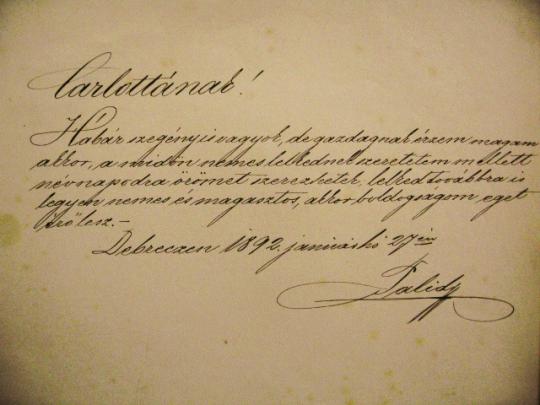 Carlottának!
Hábár szegény is vagyok, de gazdagnak érzem magam
akkor, a midőn nemes lelkednek szeretetem mellett
névnapodra örömet szerezhetek, lelked továbbra is
legyen nemes és magasztos, akkor boldogságom eget
érő lesz.-
Debreczen 1892. januárhó 27én